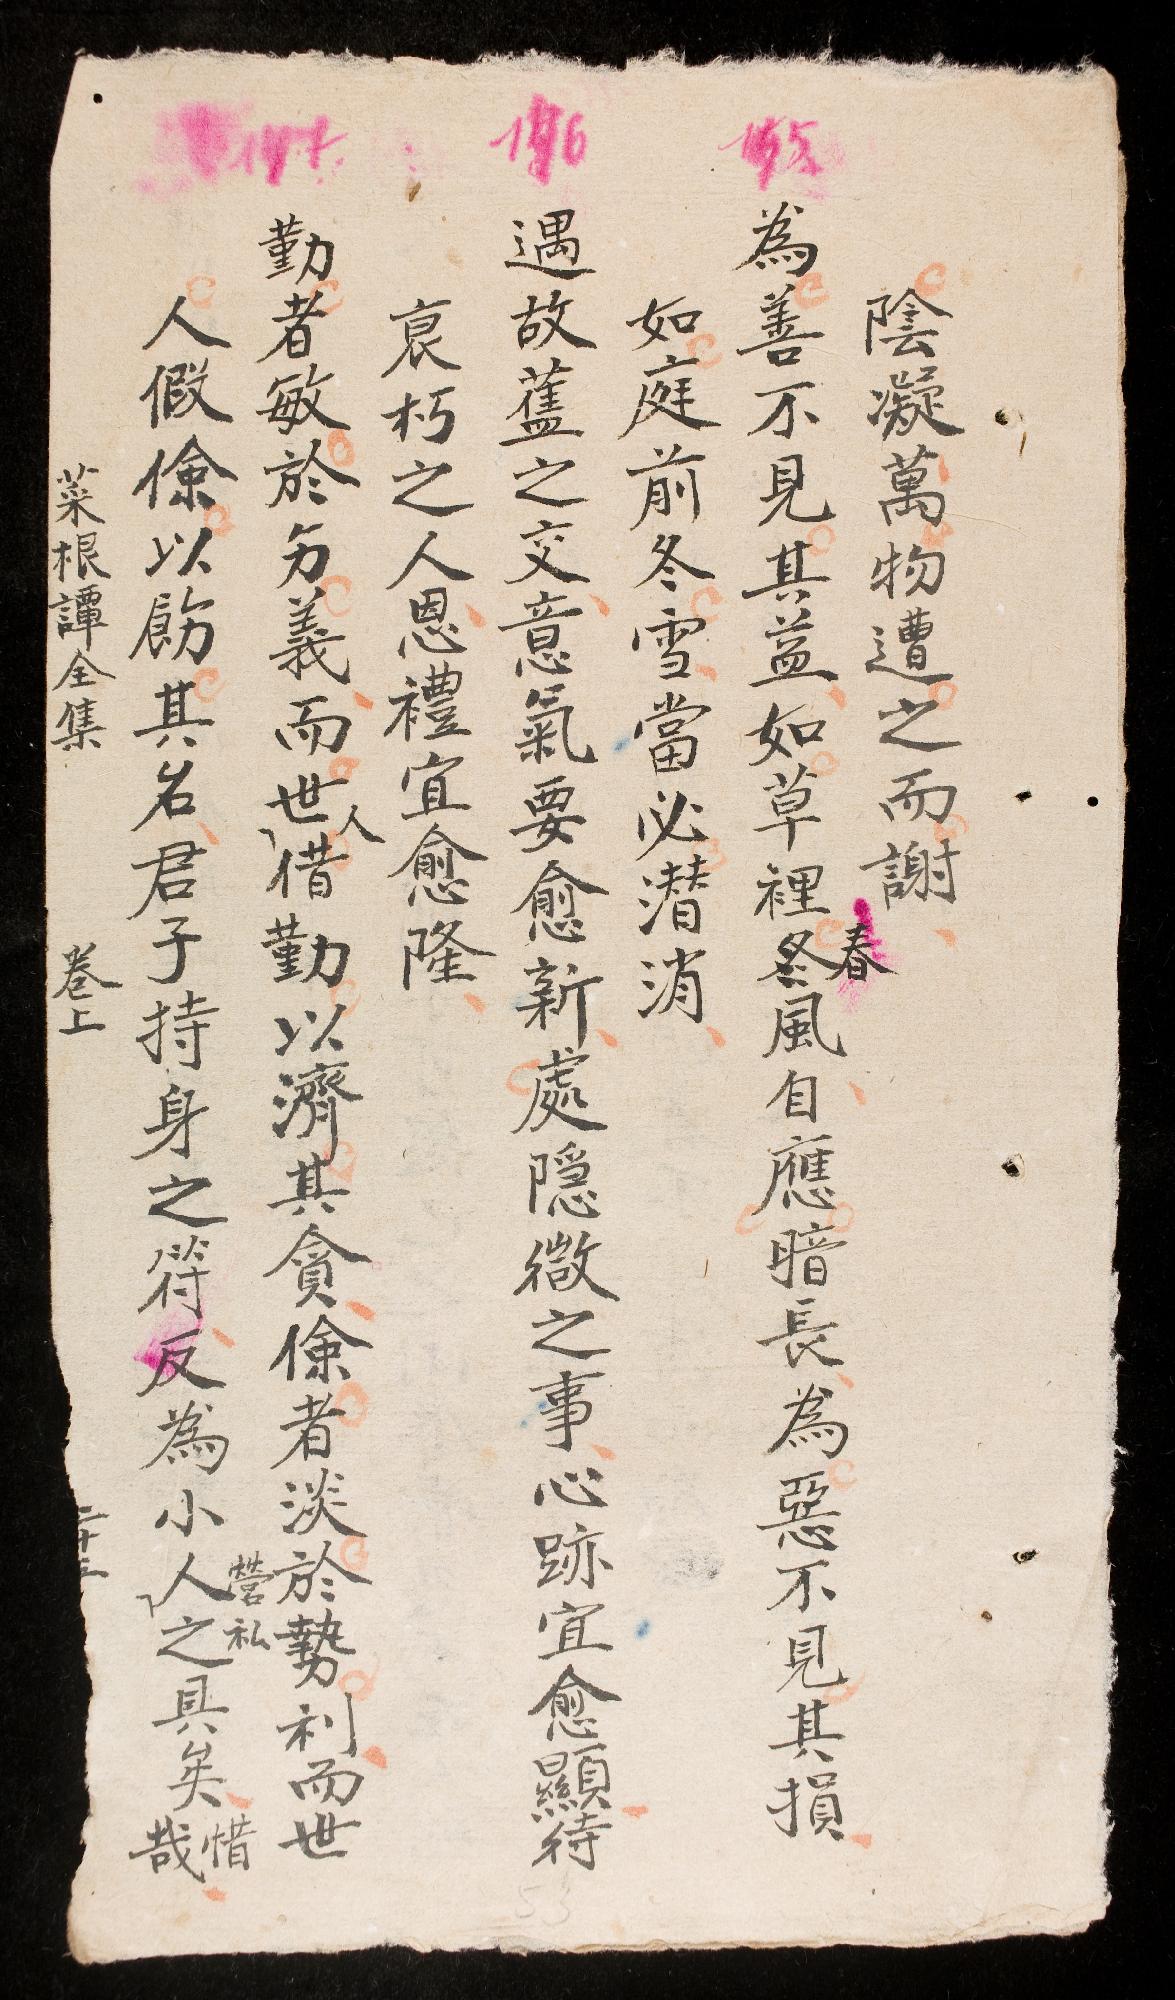 陰凝萬物遭之而謝
155
為善不見其益如草裡冬風自應暗長為惡不見其損
春
如庭前冬雪當必潛消
156
遇故舊之交意氣要愈新處隱微之事心跡宜愈顯待
衰朽之人恩禮宜愈隆
勤者敏於㔟義而世借勤以濟其貪儉者淡於勢利而世
人
人假儉以飾其名君子持身之符反為小人之具矣惜哉
營私
菜根譚全集
卷上
二十三
53